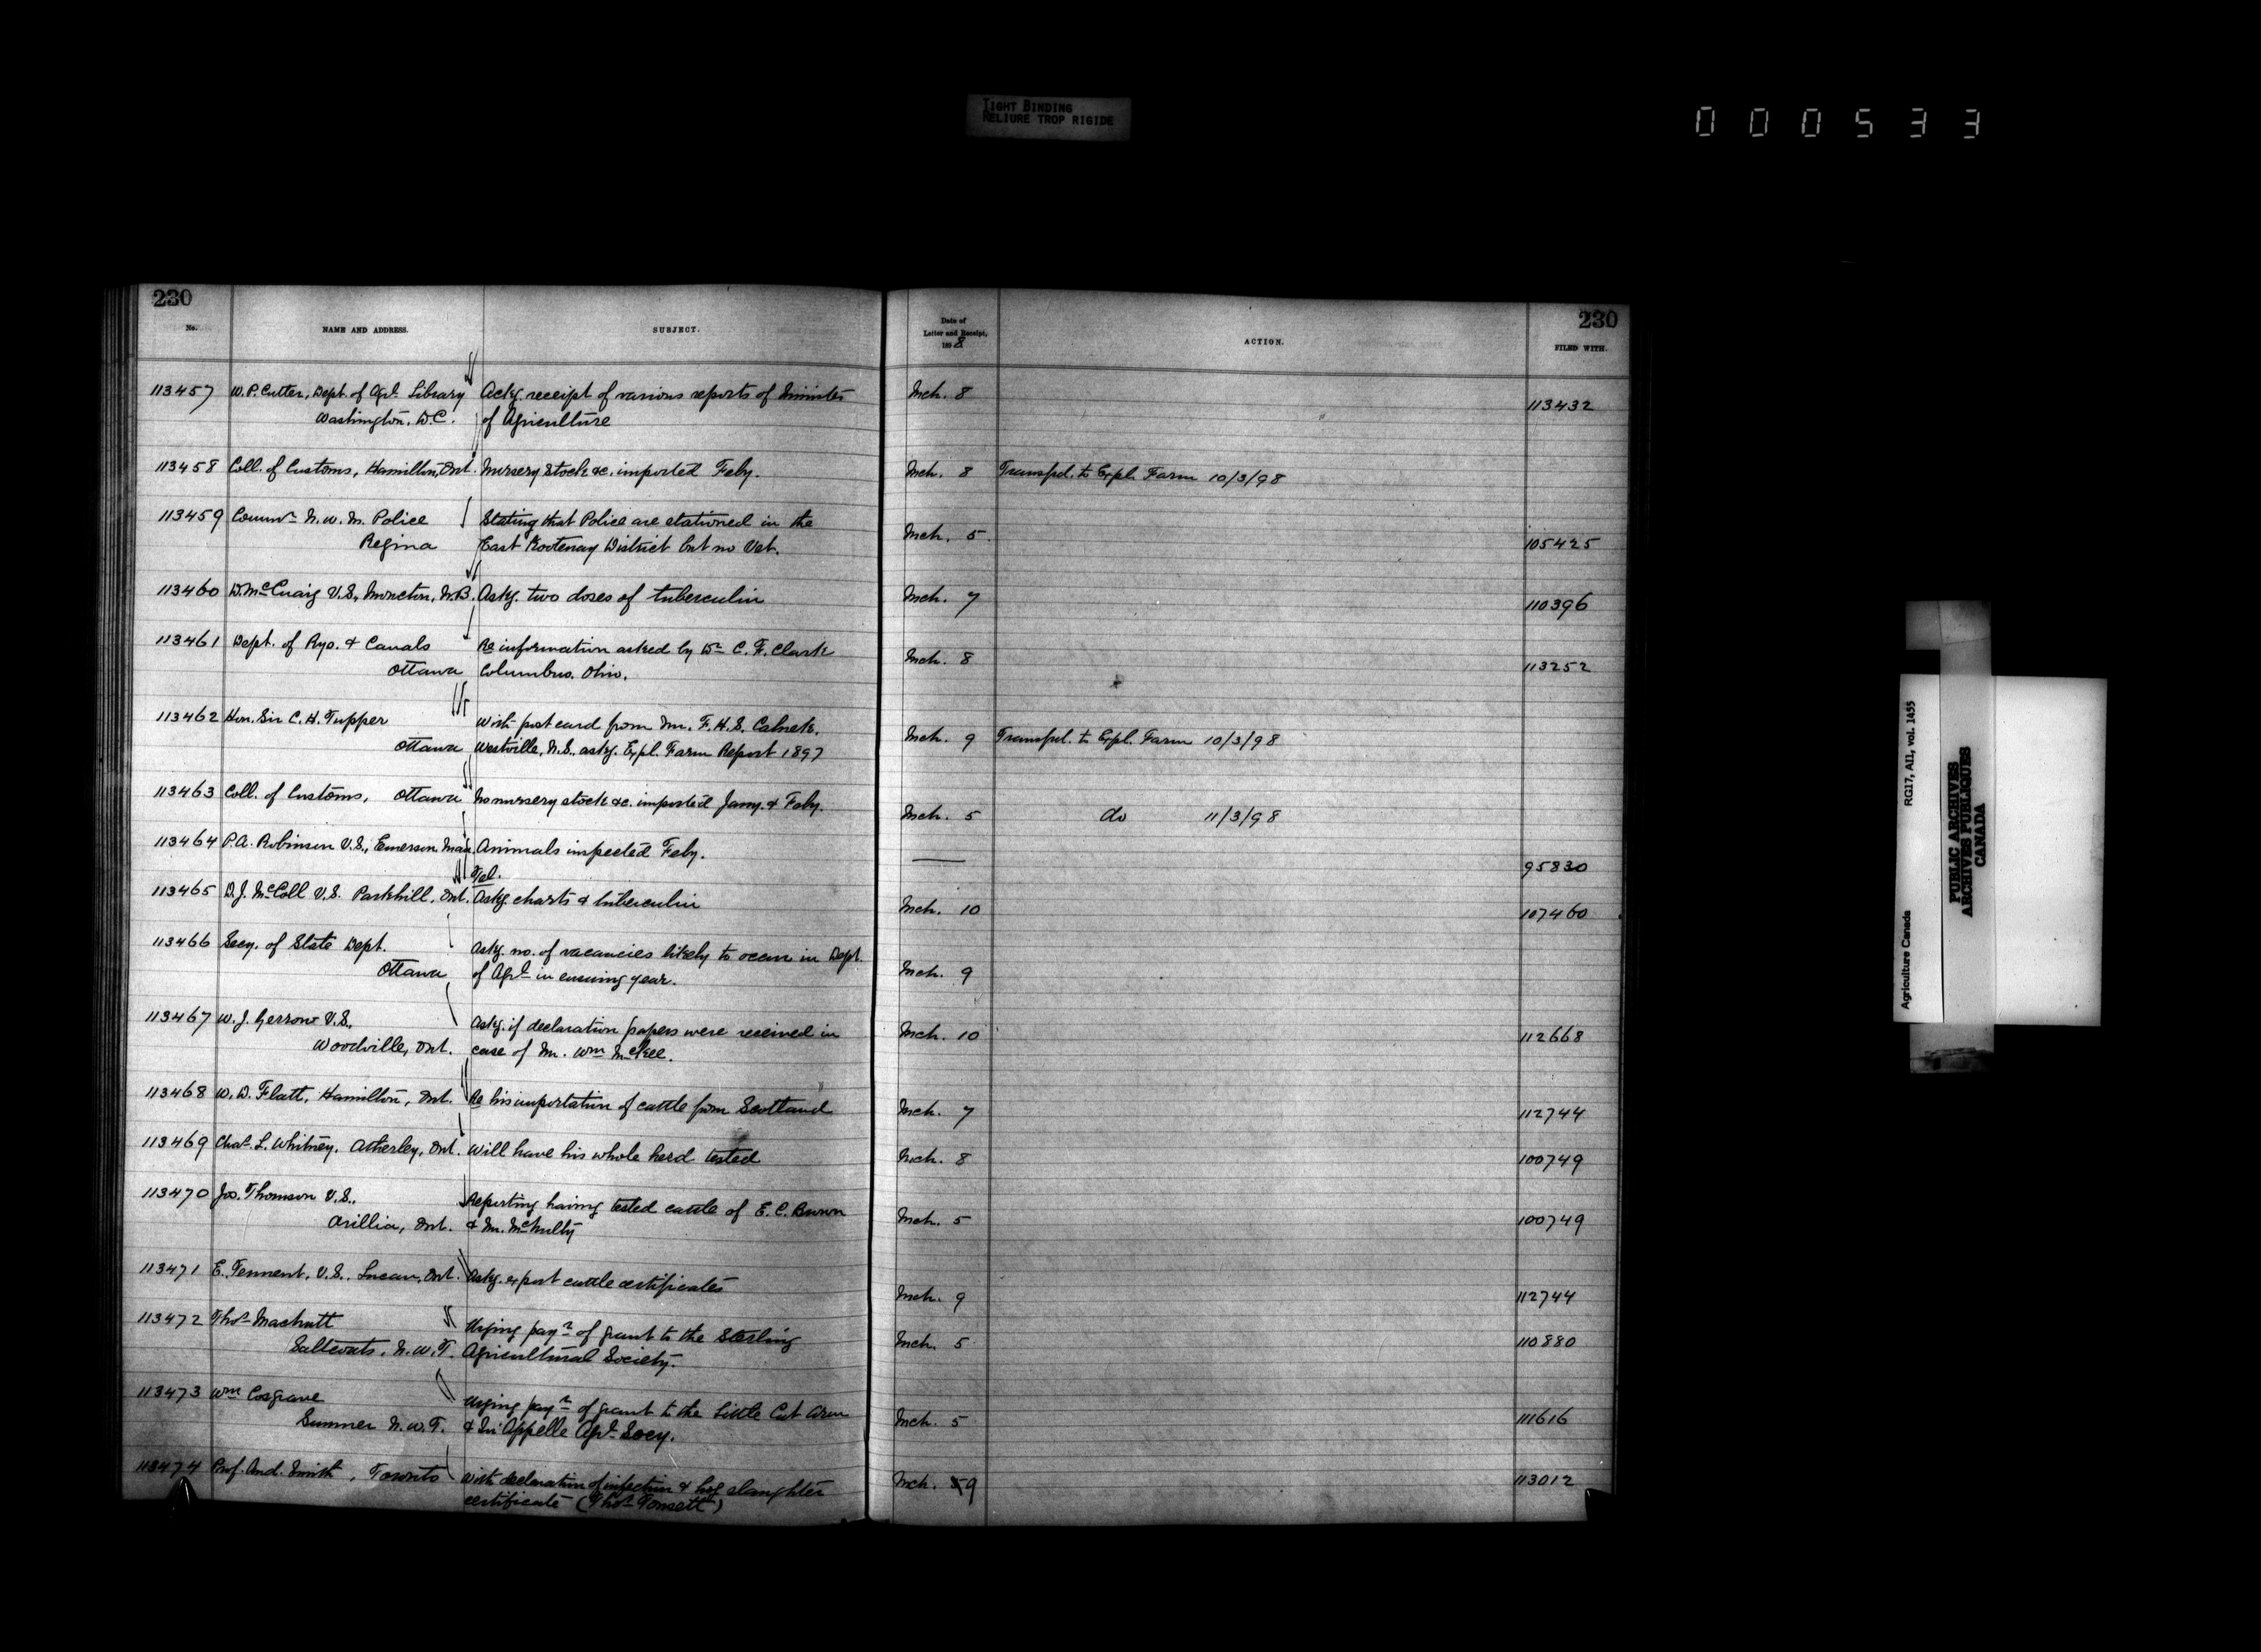 TIGHT BINDING
RELIURE TROP RIGIDE
000533
230
No. NAME AND ADDRESS. SUBJECT.
113457 W. P. Cutter, Dept. of Agrl. Library Ackg. receipt of various reports of Minister
Washington, D.C. of Agriculture
113458 Coll. of Customs, Hamilton, Ont. Nursery stock &c. imported Feby.
113459 Commr. N. W. M. Police Stating that Police are stationed in the
Regina East Kootenay District but no Vet.
113460 D. McCuaig V.S., Moncton, N.B. Askg. two doses of tuberculin
113461 Dept. of Rys. & Canals Re information asked by Dr. C. F. Clark
Ottawa Columbus, Ohio.
113462 Hon. Sir C. H. Tupper With post card from Mr. F. H. S.
Ottawa Westville, N.S., askg. Expl. Farm Report 1897
113463 Coll. of Customs, Ottawa No nursery stock &c. imported Jany. & Feby.
113464 P. A. Robinson V.S., Emerson Man. Animals inspected Feby.
Tel.
113465 D. J. McColl V.S. Parkhill, Ont. Askg. charts & tuberculin
113466 Secy. of State Dept. Askg. no. of vacancies likely to occur in Dept.
Ottawa of Agrl. in ensuing year.
113467 W. J. Gerrow V.S., Askg. if declaration papers were received in
Woodville, Ont. case of Mr. Wm McKee.
113468 W. D. Flatt, Hamilton, Ont. Re his importation of cattle from Scotland
113469 Chas. L. Whitney, Atherley, Ont. Will have his whole herd tested
113470 Jos. Thomson V.S., Reporting having tested cattle of E. C. Brown
Orillia, Ont. & Mr. McNulty
113471 E. Tennent, V.S., Lucan, Ont. Askg. export cattle certificates
113472 Thos. MacNutt Urging payt. of grant to the Sterling
Saltcoats, N.W.T. Agricultural Society.
113473 Wm Cosgrave Urging payt. of grant to the Little Cut Arm
Sumner N.W.T. & Qu'Appelle Agrl. Socy.
113474 Prof. And. Smith, Toronto With declaration of infection & hog slaughter
certificate (Thos. )
230
Date of Letter and Receipt, 1898 ACTION. FILED WITH.
Mch. 8 113432
Mch. 8 Transfd. to Expl. Farm 10/3/98
Mch. 5. 105425
Mch. 7 110396
Mch. 8 113252
Mch. 9 Transfd. to Expl. Farm 10/3/98
Mch. 5 do 11/3/98
— 95830
Mch. 10 107460
Mch. 9
Mch. 10 112668
Mch. 7 112744
Mch. 8 100749
Mch. 5 100749
Mch. 9 112744
Mch. 5 110880
Mch. 5 111616
Mch. 9 113012
Agriculture Canada RG17, AI1, vol. 1455
PUBLIC ARCHIVES
ARCHIVES PUBLIQUES
CANADA